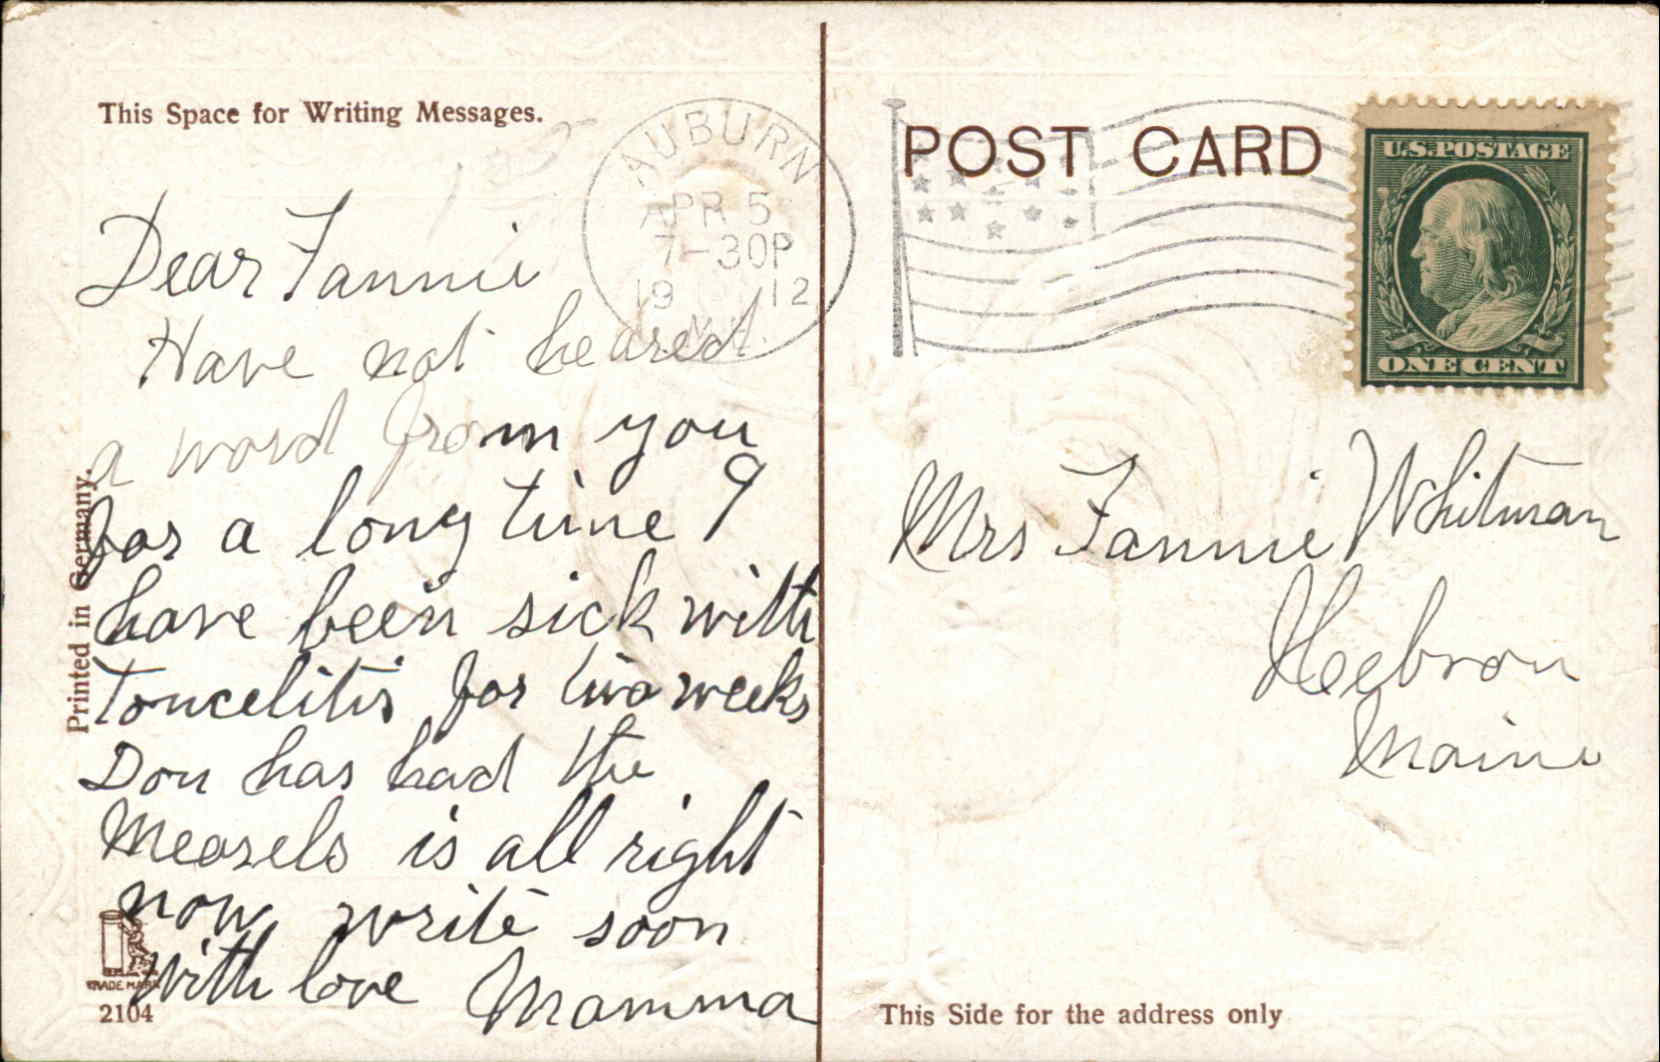 This Space for Writing Messages.
AUBURN
APR 5
7-30P
19 12
Dear Fannie
Have not heared
a word from you
for a long time I
have been sick with
Toncelitis for two weeks
Don has had the
Measels is all right
now write soon
With love Mamma
Printed in Germany.
TRADE MARK
2104
POST CARD
U.S.POSTAGE
ONE CENT
Mrs Fannie Whitman
Hebron
Maine
This Side for the address only